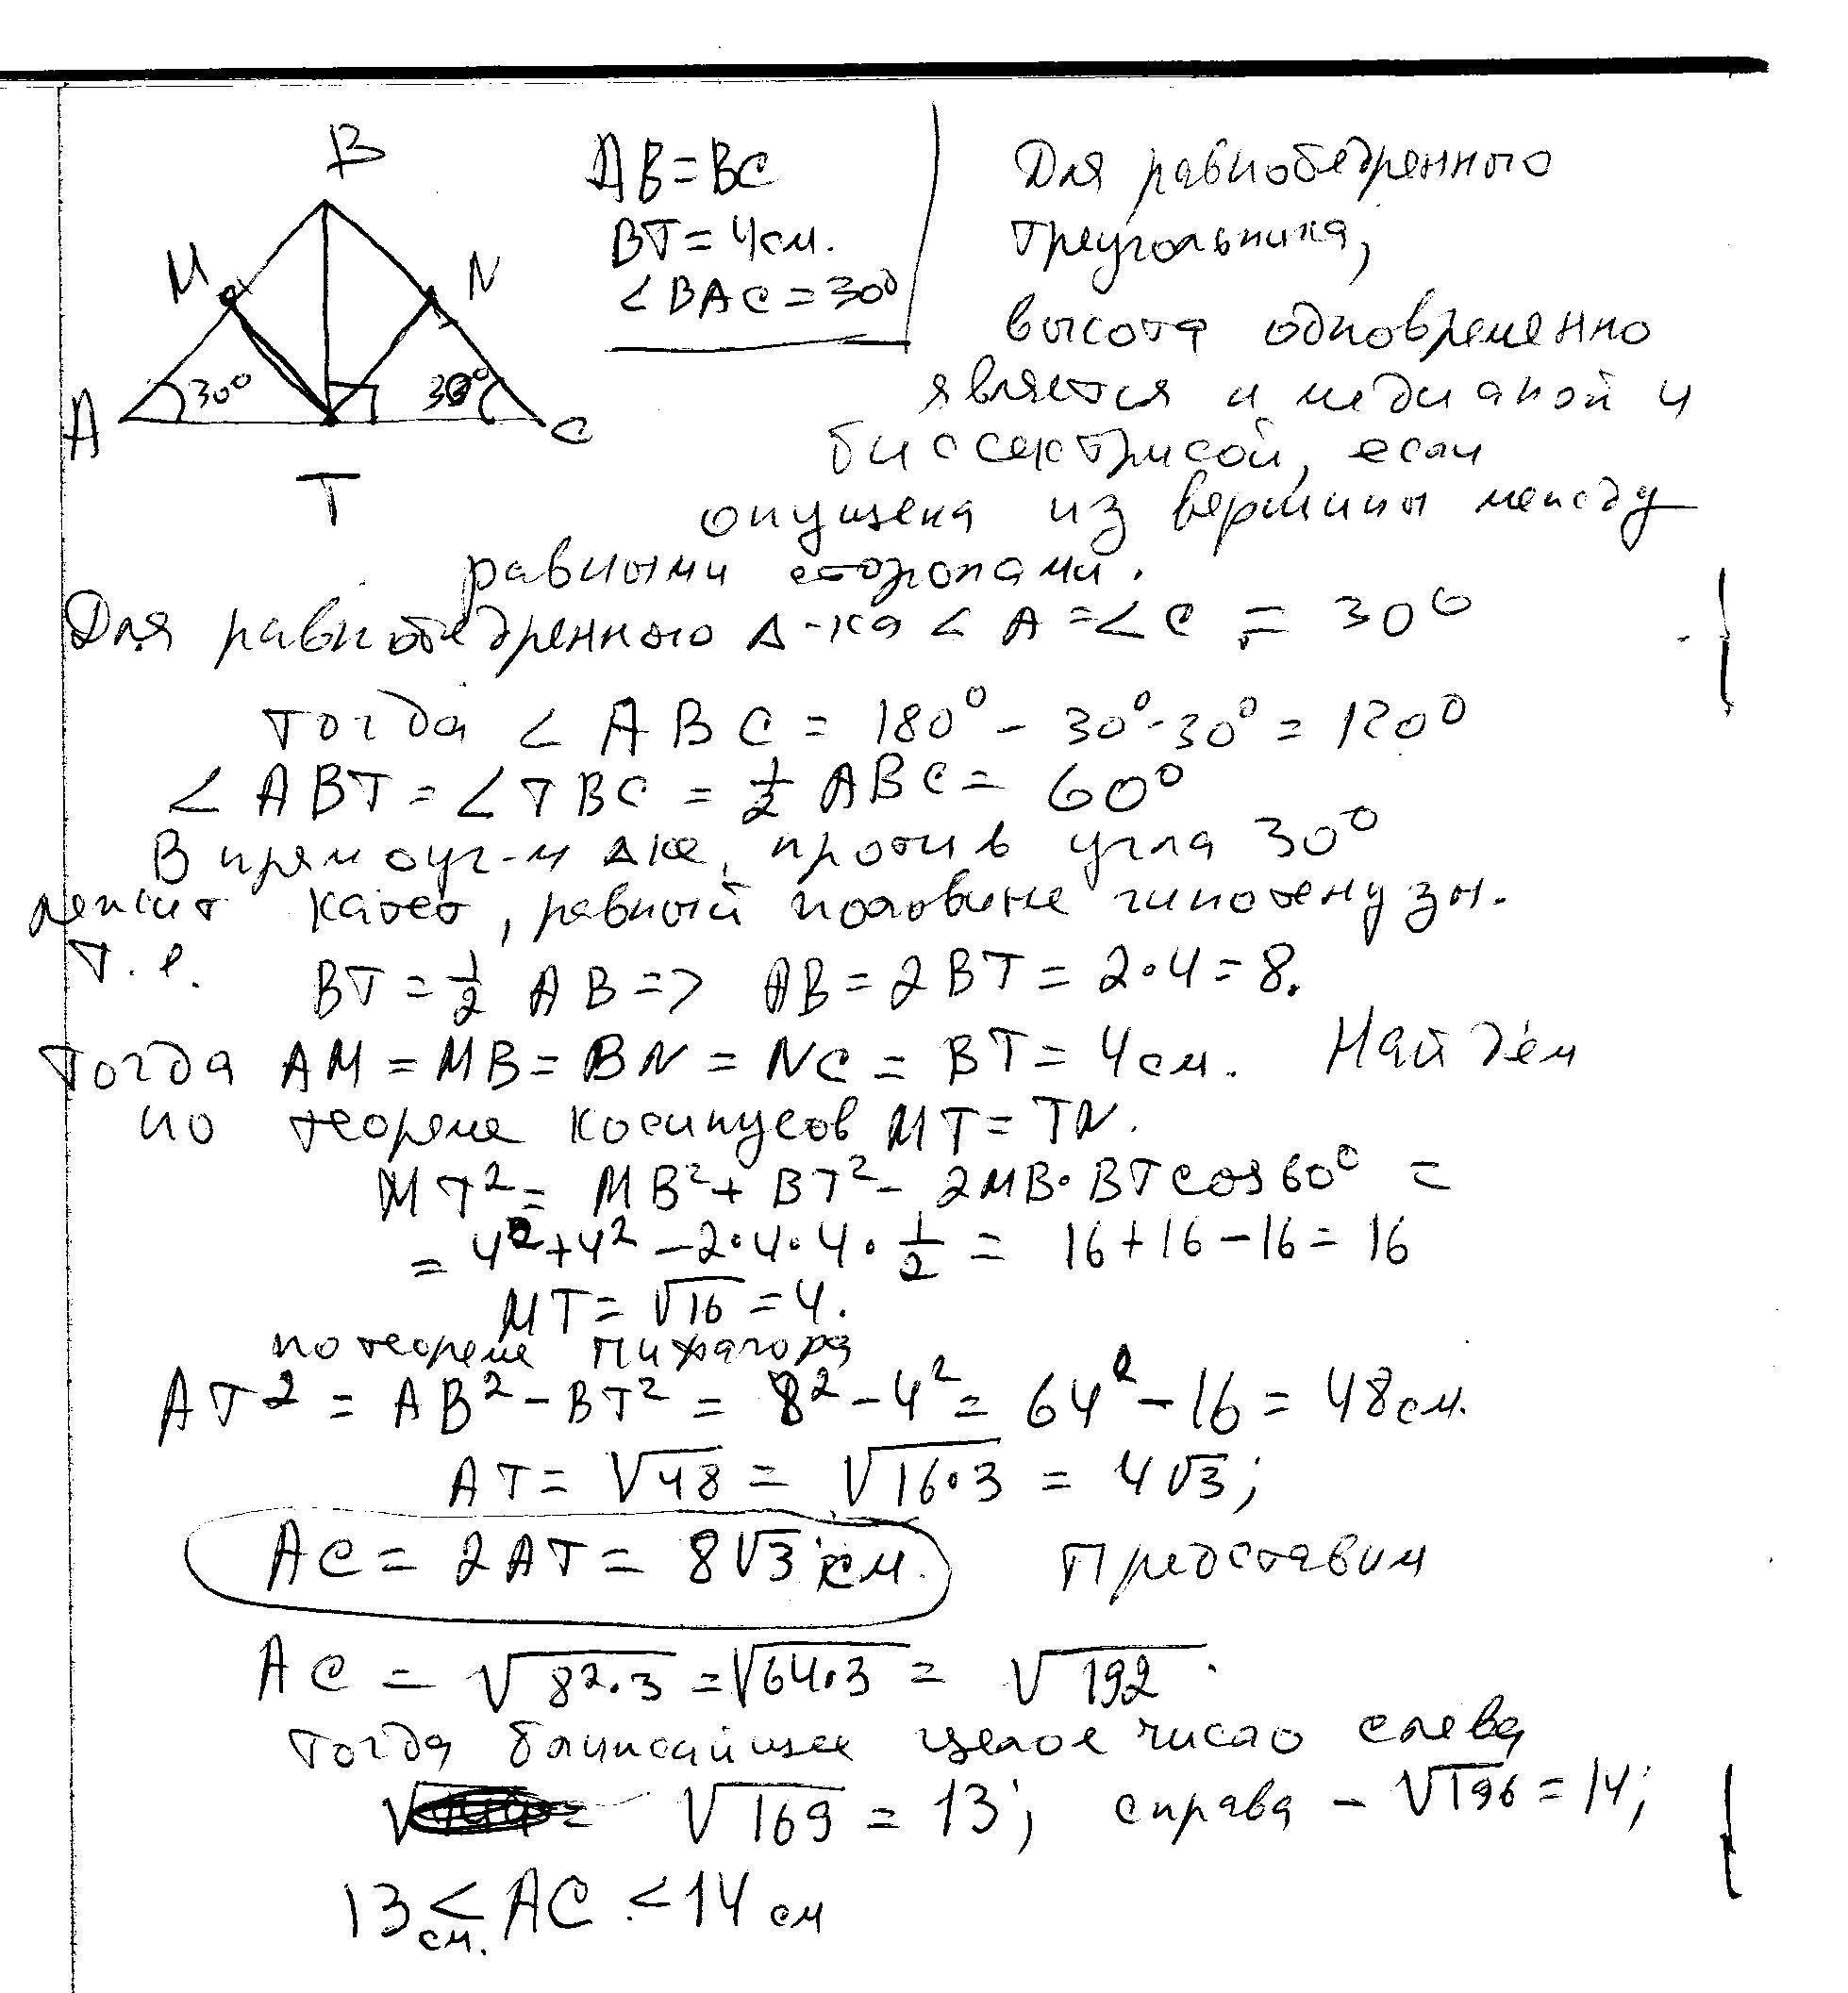 B
M
N
A
30°
30°
C
T
AB = BC
BT = 4см.
< BAC = 30°
Для равнобедренного
треугольника,
высота одновременно
является и медианой и
биссектрисой, если
опущена из вершины между
равными сторонами.
Для равнобедренного Δ-ка < A = < C = 30°
тогда < ABC = 180° - 30° - 30° = 120°
< ABT = < TBC = 1/2 ABC = 60°
В прямоуг-м Δке, против угла 30°
лежит катет, равный половине гипотенузы.
т.е. BT = 1/2 AB => AB = 2BT = 2·4 = 8.
тогда AM = MB = BN = NC = BT = 4см. Найдём
по теореме косинусов MT = TN.
MT² = MB² + BT² - 2MB·BT cos60° =
= 4² + 4² - 2·4·4·1/2 = 16 + 16 - 16 = 16
MT = √16 = 4.
по теореме Пифагора
AT² = AB² - BT² = 8² - 4² = 64² - 16 = 48см.
AT = √48 = √16·3 = 4√3;
AC = 2AT = 8√3 см. Представим
AC = √8²·3 = √64·3 = √192.
тогда ближайшее целое число слева
√169 = 13; справа - √196 = 14;
13 см. < AC < 14 см